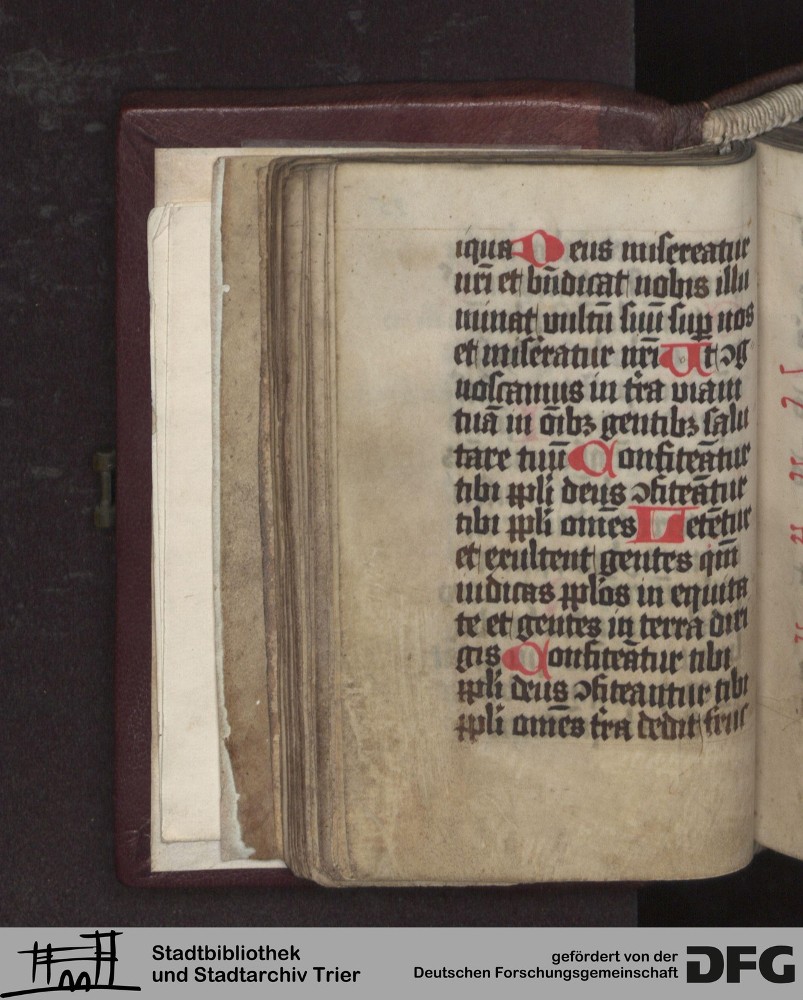 iqua Deus misereatur
nr̄i et bn̄dicat nobis illu
minat vultū suū suꝑ nos
et miseratur nr̄i Ut ꝯg
noscamus in tr̄a viam
tuā in oībꝫ gentibꝫ salu
tare tuū Confiteātur
tibi ppl̄i deus ꝯfiteātur
tibi ppl̄i om̄es Letētur
et exultent gentes qm̄
iudicas ppl̄os in equita
te et gentes in terra diri
gis Confiteātur tibi
ppl̄i deus ꝯfiteantur tibi
ppl̄i om̄es tr̄a dedit fruc
Stadtbibliothek
und Stadtarchiv Trier
gefördert von der
Deutschen Forschungsgemeinschaft
DFG